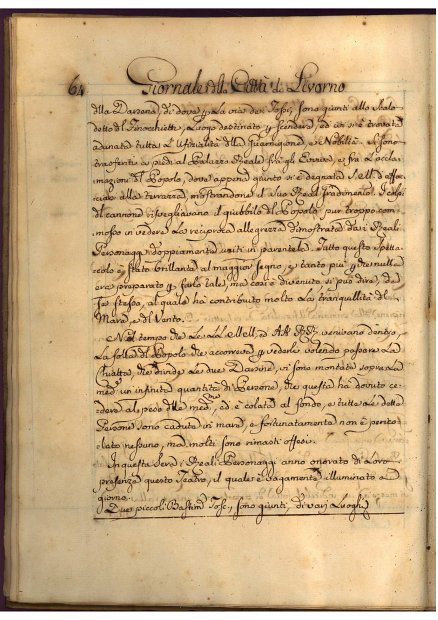 64 Giornale della Città di Livorno
della Darsena, di dove p. la via dei Fossi, sono giunti allo Scalo
detto del Finocchietti, Luogo destinato p. scendere, ed ivi si è trovata
adunata tutta l'Ufizialità della Guarnigione, e Nobiltà, e si sono
trasferiti a piedi al Palazzo Reale fra gli Evviva, e fra l'acclamazioni
del Popolo, dove appena giunto si è degnata S. M. d'affac-
ciarsi alla terrazza, mostrandone il suo Real gradimento. I colpi
di cannone risvegliavano il giubbilo del Popolo pur troppo com-
mosso in vedere la reciproca allegrezza dimostrata dai Reali
Personaggi doppiamente uniti in parentela. Tutto questo Spetta-
colo è stato brillante al maggior segno, e tanto più, che nulla
era preparato p. farlo tale, ma così è divenuto si può dire, da
se stesso, al quale ha contribuito molto la tranquillità del
Mare, e del Vento.
Nel tempo che le LL. MM. ed AA. RR. venivano dentro,
la folla del Popolo che accorreva p. vedere volendo passare la
Chiatta, che divide le due Darsine, vi sono montate sopra la
med.ª un infinita quantità di Persone, che questa ha dovuto ce-
dere al peso delle med.e, ed è colata al fondo, e tutte le dette
Persone sono cadute in mare, e fortunatamente non è perico-
lato nessuno, ma molti sono rimasti offesi.
In questa sera i Reali Personaggi anno onorato di loro
presenza questo Teatro, il quale è vagamente illuminato a
giorno.
Due piccoli Bastim.ti Tosc., sono giunti, di varj Luoghi